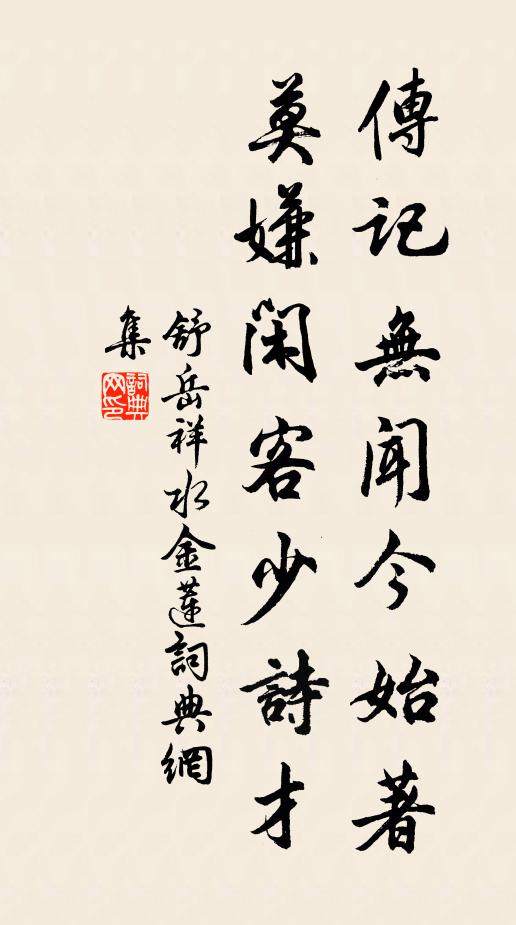 傳記無聞今始著
莫嫌閑客少詩才
舒岳祥水金蓮詞典網
集
詞典网印